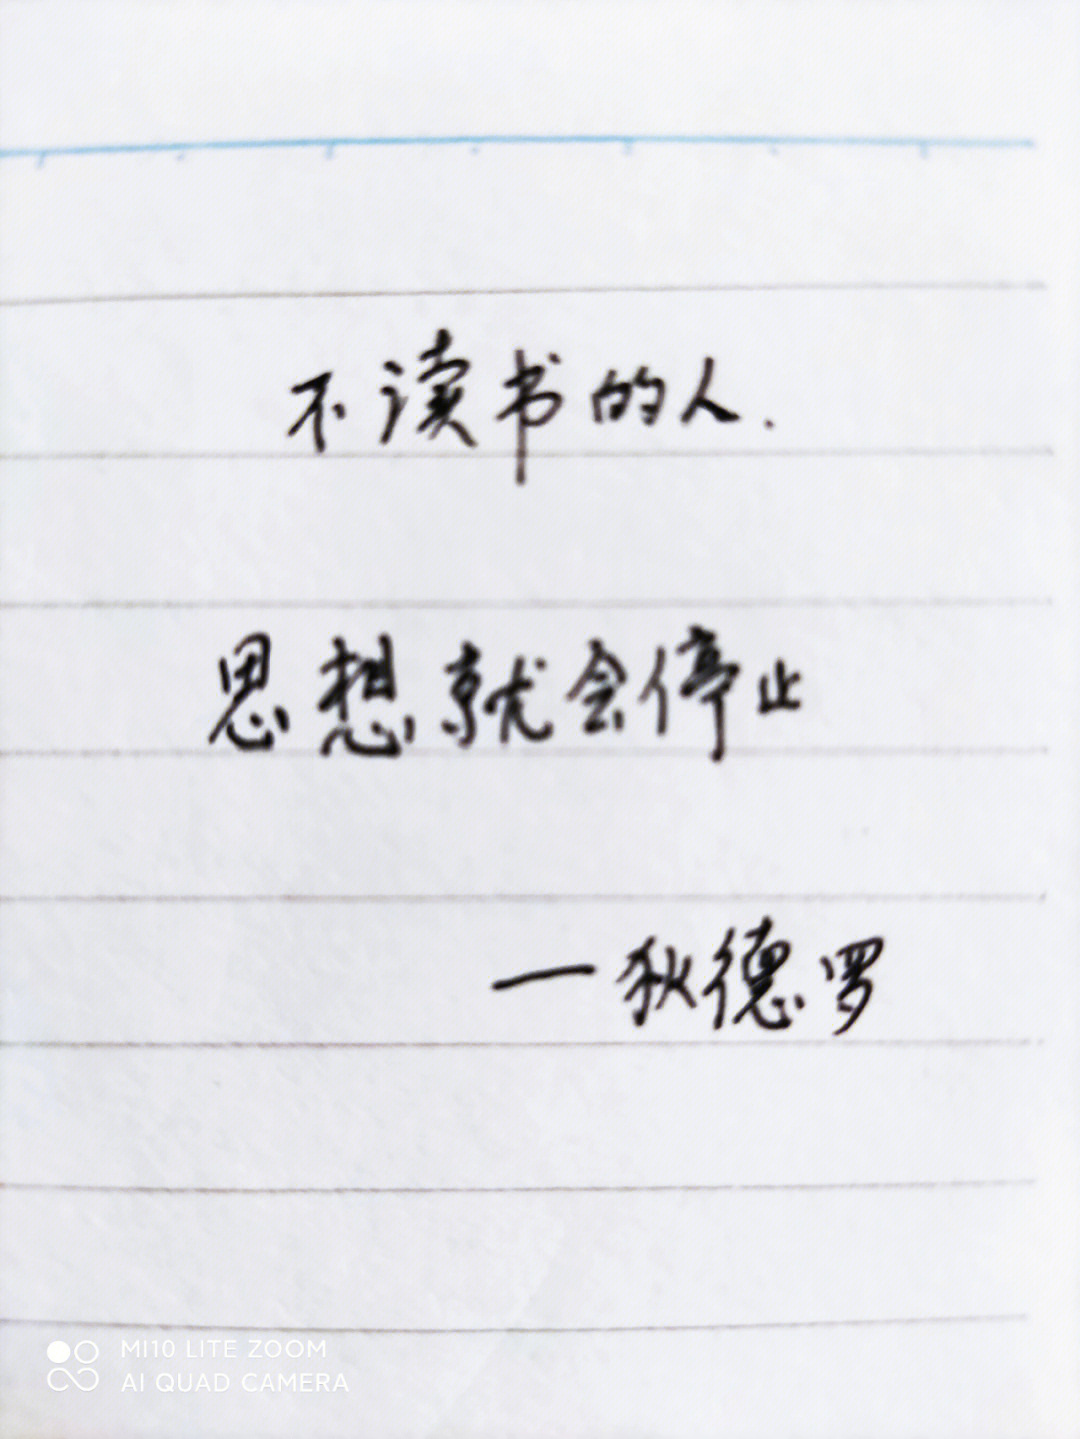 不读书的人.
思想就会停止
—狄德罗
MI10 LITE ZOOM
AI QUAD CAMERA